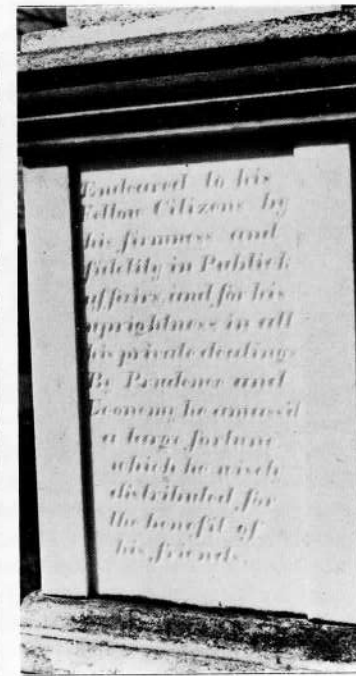 Endeared to his
Fellow Citizens by
his firmness and
fidelity in Publick
affairs and for his
uprightness in all
his private dealings
By Prudence and
Economy he amass'd
a large fortune
which he wisely
distributed for
the benefit of
his friends.